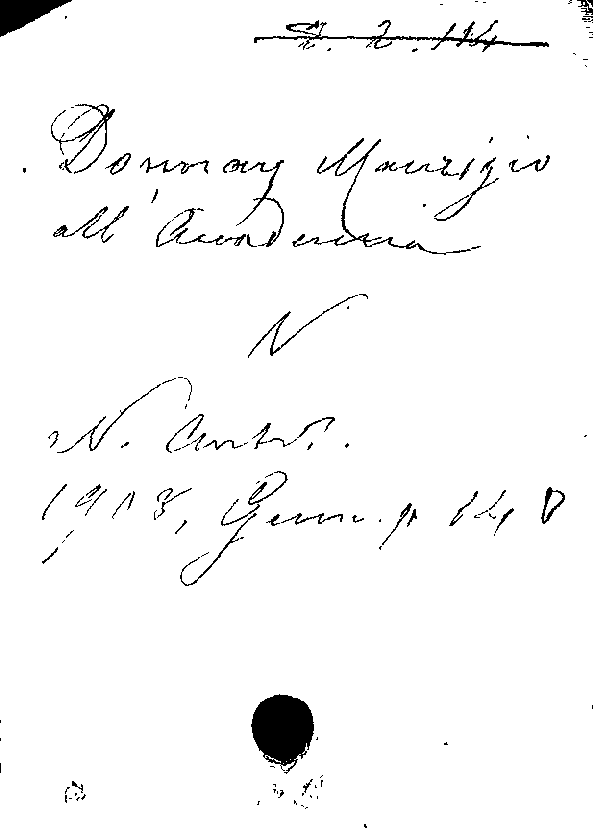 Z. Z. 114
Donnay Maurizio
all'Accademia
N
N. Antol.
1908, Genn. p 140